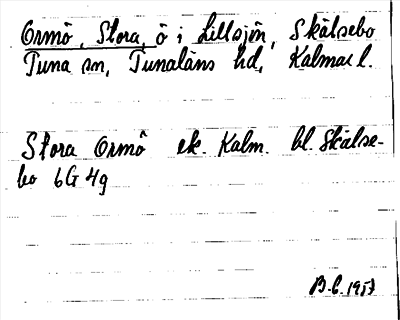 Ormö, Stora, ö i Lillsjön, Skälsebo
Tuna sn, Tunaläns hd, Kalmar l.
Stora Ormö ek. Kalm. bl. Skälse-
bo 6G 4g
B.C. 1953